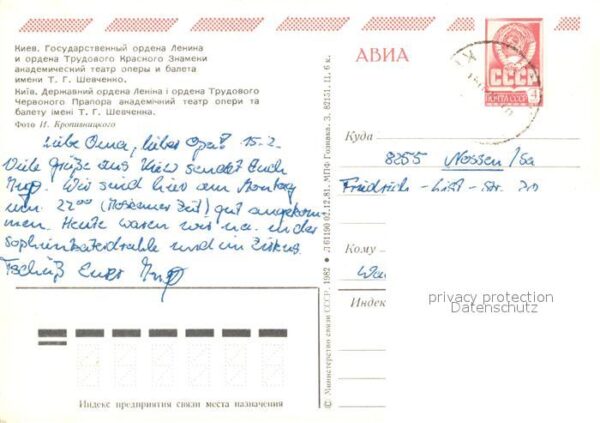 Киев. Государственный ордена Ленина
и ордена Трудового Красного Знамени
академический театр оперы и балета
имени Т. Г. Шевченко.
Київ. Державний ордена Леніна і ордена Трудового
Червоного Прапора академічний театр опери та
балету імені Т. Г. Шевченка.
Фото И. Кропивницкого
Liebe Oma, lieber Opa! 15.2.
Viele Grüße aus Kiew sendet Euch
Ingo. Wir sind hier am Montag
um 22⁰⁰ (Moskauer Zeit) gut angekom-
men. Heute waren wir u.a. in der
Sophienkatedrahle und im Zirkus.
Tschüß Euer Ingo
Индекс предприятия связи места назначения
© Министерство связи СССР. 1982 Л 61190 02.12.81. МПФ Гознака. З. 82151. Ц. 6 к.
АВИА
СССР
ПОЧТА СССР
4
Куда
8255 Nossen/Sa
Friedrich-List-Str. 20
Кому
Индек
privacy protection
Datenschutz